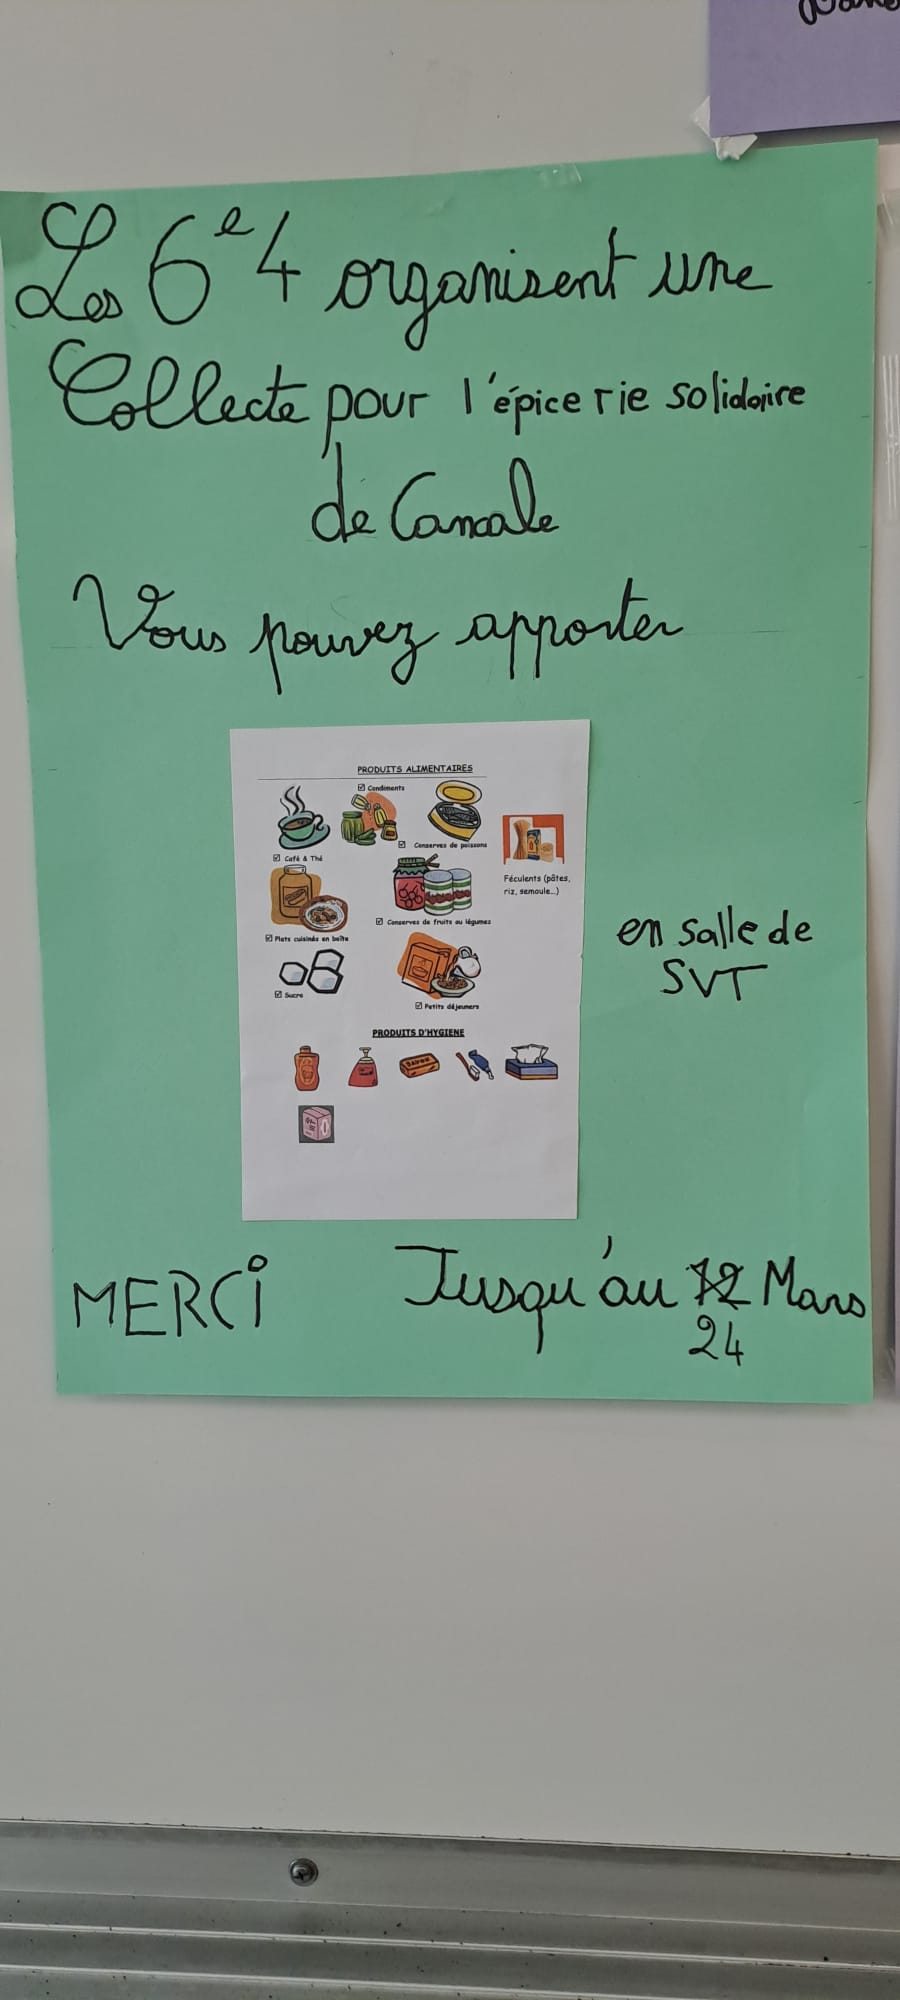 Les 6e4 organisent une
Collecte pour l'épicerie solidaire
de Cancale
Vous pouvez apporter
PRODUITS ALIMENTAIRES
☑ Condiments
☑ Conserves de poissons
☑ Café & Thé
Féculents (pâtes,
riz, semoule...)
☑ Conserves de fruits ou légumes
☑ Plats cuisinés en boîte
☑ Sucre
☑ Petits déjeuners
PRODUITS D'HYGIENE
SAVON
en salle de
SVT
MERCi
Jusqu'au 12 Mars
24